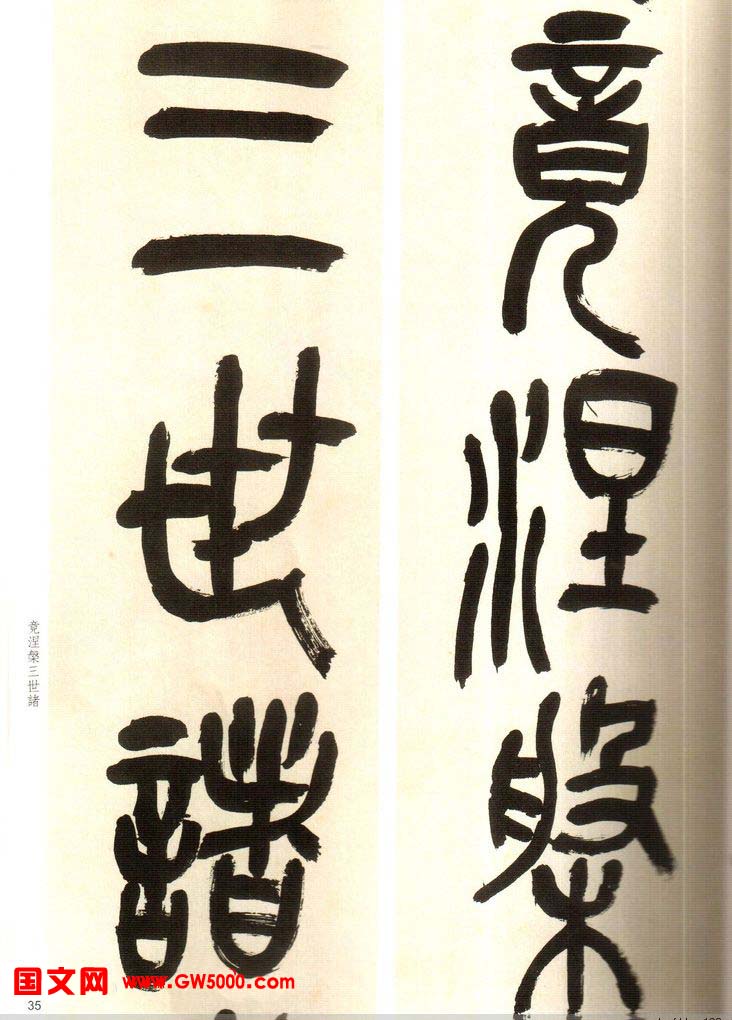 竟涅槃
三世諸
竟涅槃三世諸
国文网 www.GW5000.com
35